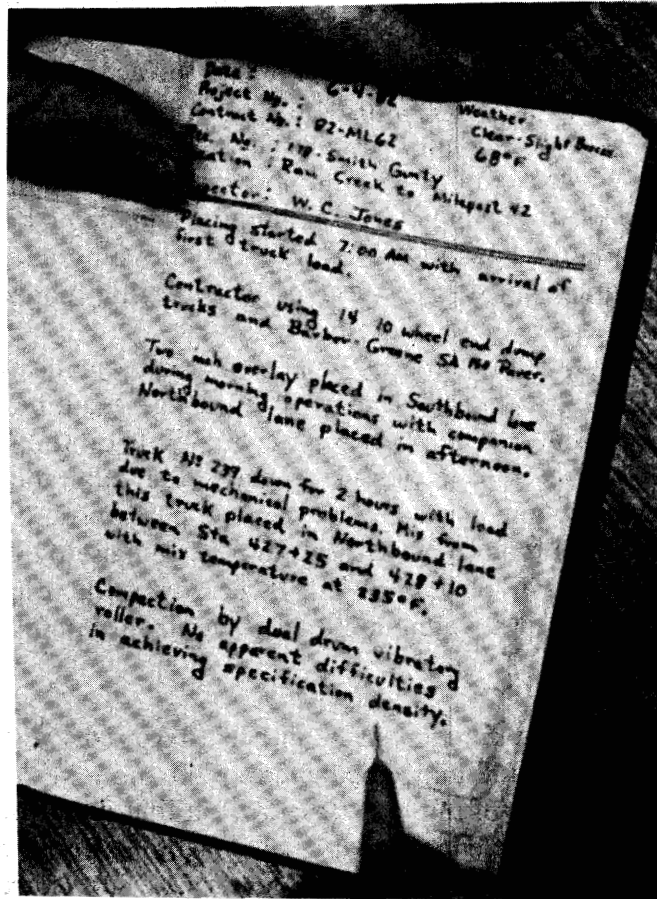 Date: 6-4-82
Weather:
Project No.:
Clear-Slight Breeze
Contract No.: 82-ML62
68°F
No.: 178-Smith County
: Ram Creek to Milepost 42
W. C. Jones
Placing started 7:00 AM with arrival of
first truck load.
Contractor using 14 10 wheel end dump
trucks and Barber-Greene SA Paver.
Two inch overlay placed in Southbound lane
during morning operations with companion
Northbound lane placed in afternoon.
Truck Nº 237 down for 2 hours with load
due to mechanical problems. Mix from
this truck placed in Northbound lane
between Sta 427+25 and 428+10
with mix temperature at 235°F.
Compaction by dual drum vibratory
roller. No apparent difficulties
in achieving specification density.